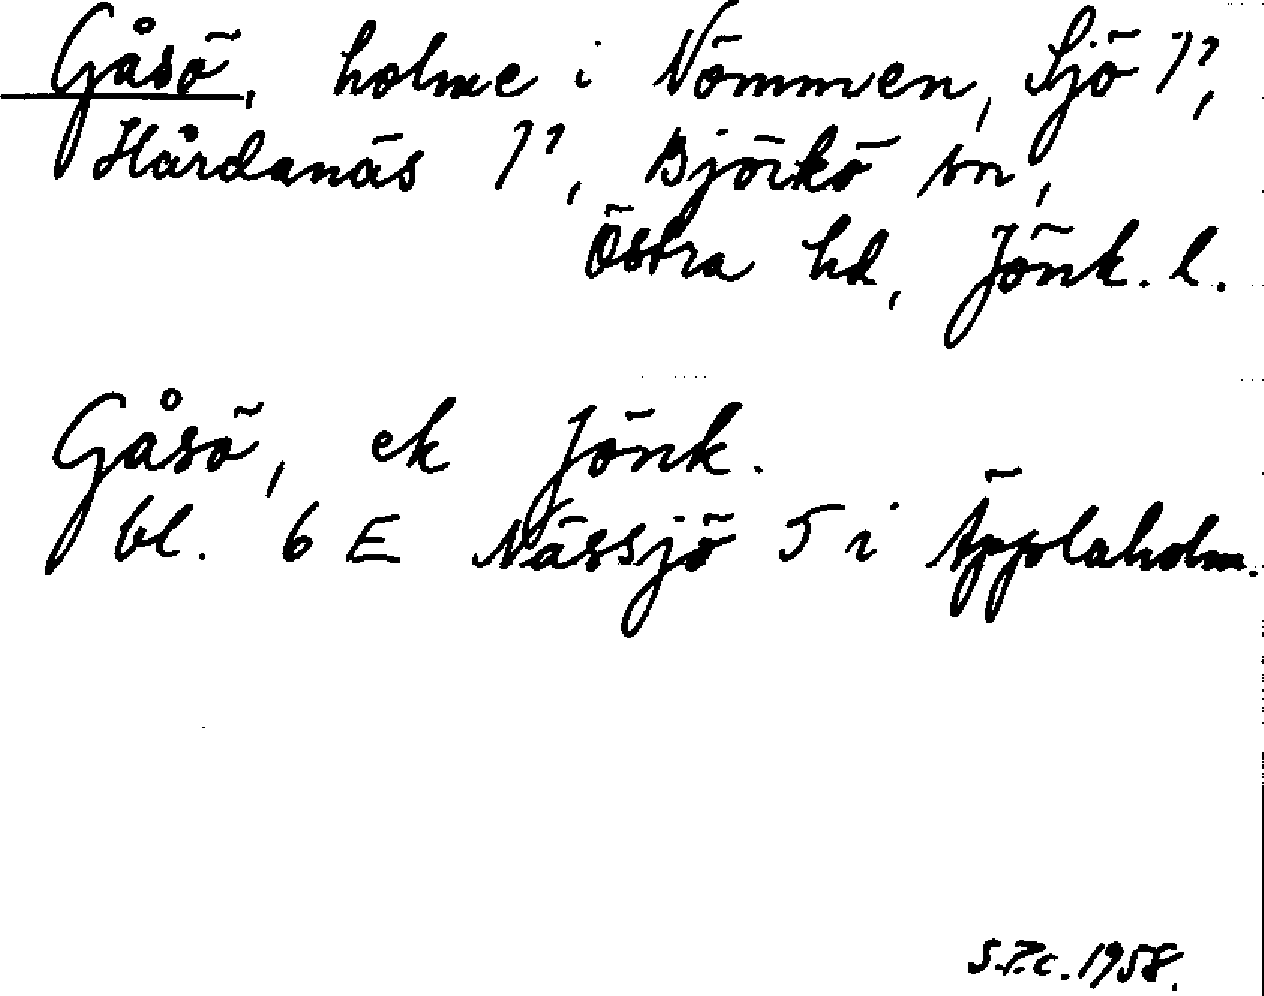 Gåsö, holme i Nömmen, Sjö 1²,
Hårdanäs 1², Björkö sn,
Östra hd, Jönk. l.
Gåsö, ek Jönk.
bl. 6 E Nässjö 5 i Äpplaholm.
S.P.c. 1958.